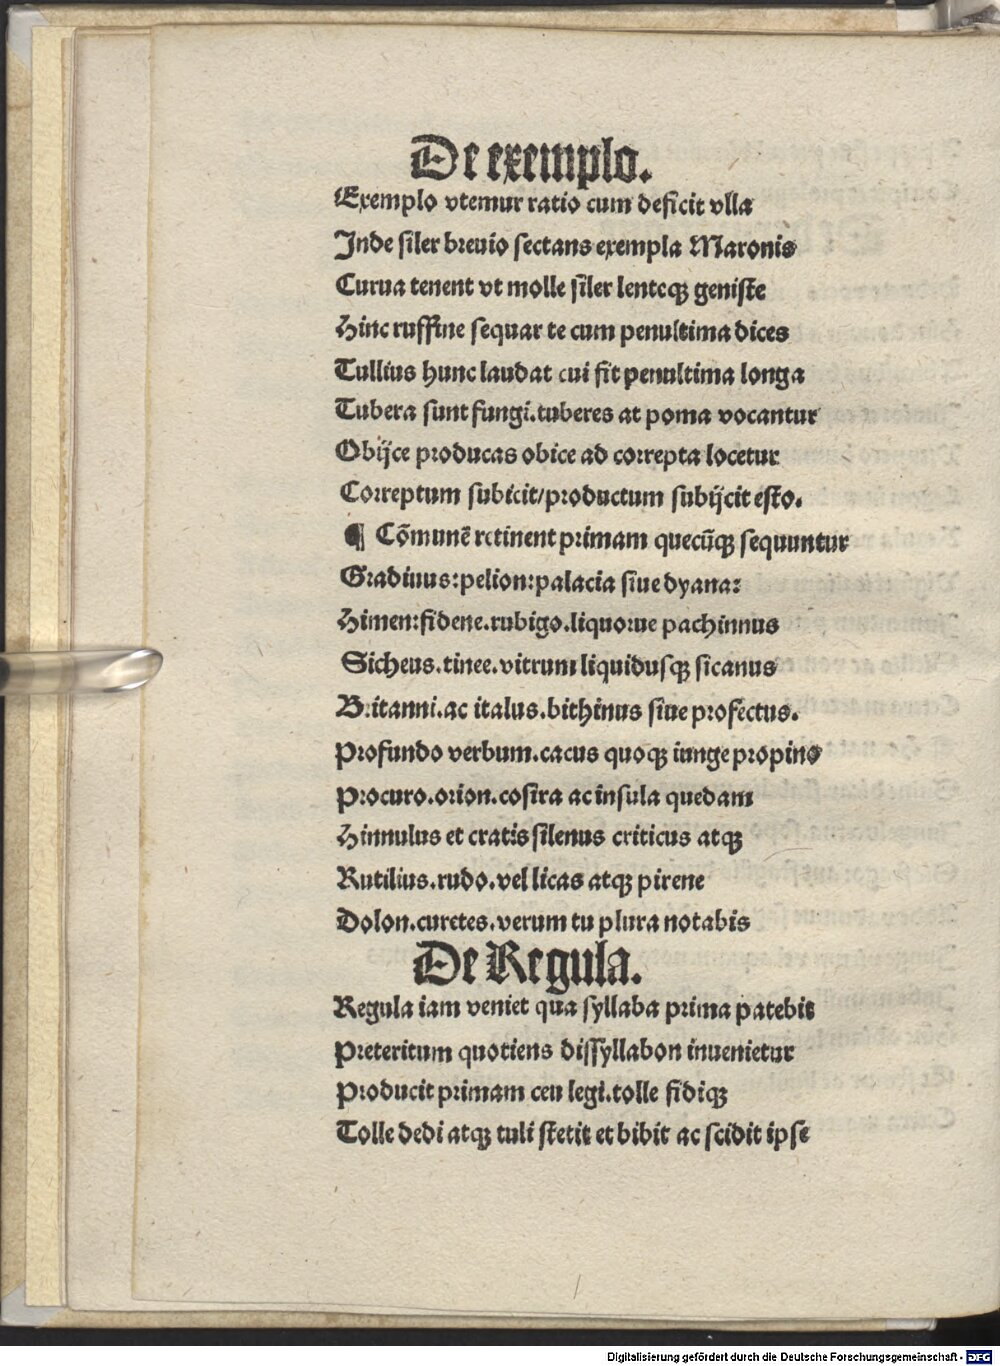 De exemplo.
Exemplo vtemur ratio cum deficit vlla
Inde siler breuio sectans exempla Maronis
Curua tenent vt molle siler lenteqꝫ geniste
Hinc ruffine sequar te cum penultima dices
Tullius hunc laudat cui fit penultima longa
Tubera sunt fungi.tuberes at poma vocantur
Obijce producas obice ad correpta locetur
Correptum subicit/productum subijcit esto.
¶ Cõmunẽ retinent primam quecũqꝫ sequuntur
Gradiuus:pelion:palacia siue dyana:
Himen:fidene.rubigo.liquorue pachinnus
Sicheus.tinee.vitrum liquidusqꝫ sicanus
Britanni.ac italus.bithinus siue profectus.
Profundo verbum.cacus quoqꝫ iunge propino
Procuro.orion.cosira ac insula quedam
Hinnulus et cratis silenus criticus atqꝫ
Rutilius.rudo.vel licas atqꝫ pirene
Dolon.curetes.verum tu plura notabis
De Regula.
Regula iam veniet qua syllaba prima patebit
Preteritum quotiens dissyllabon inuenietur
Producit primam ceu legi.tolle fidiqꝫ
Tolle dedi atqꝫ tuli stetit et bibit ac scidit ipse
Digitalisierung gefördert durch die Deutsche Forschungsgemeinschaft - DFG